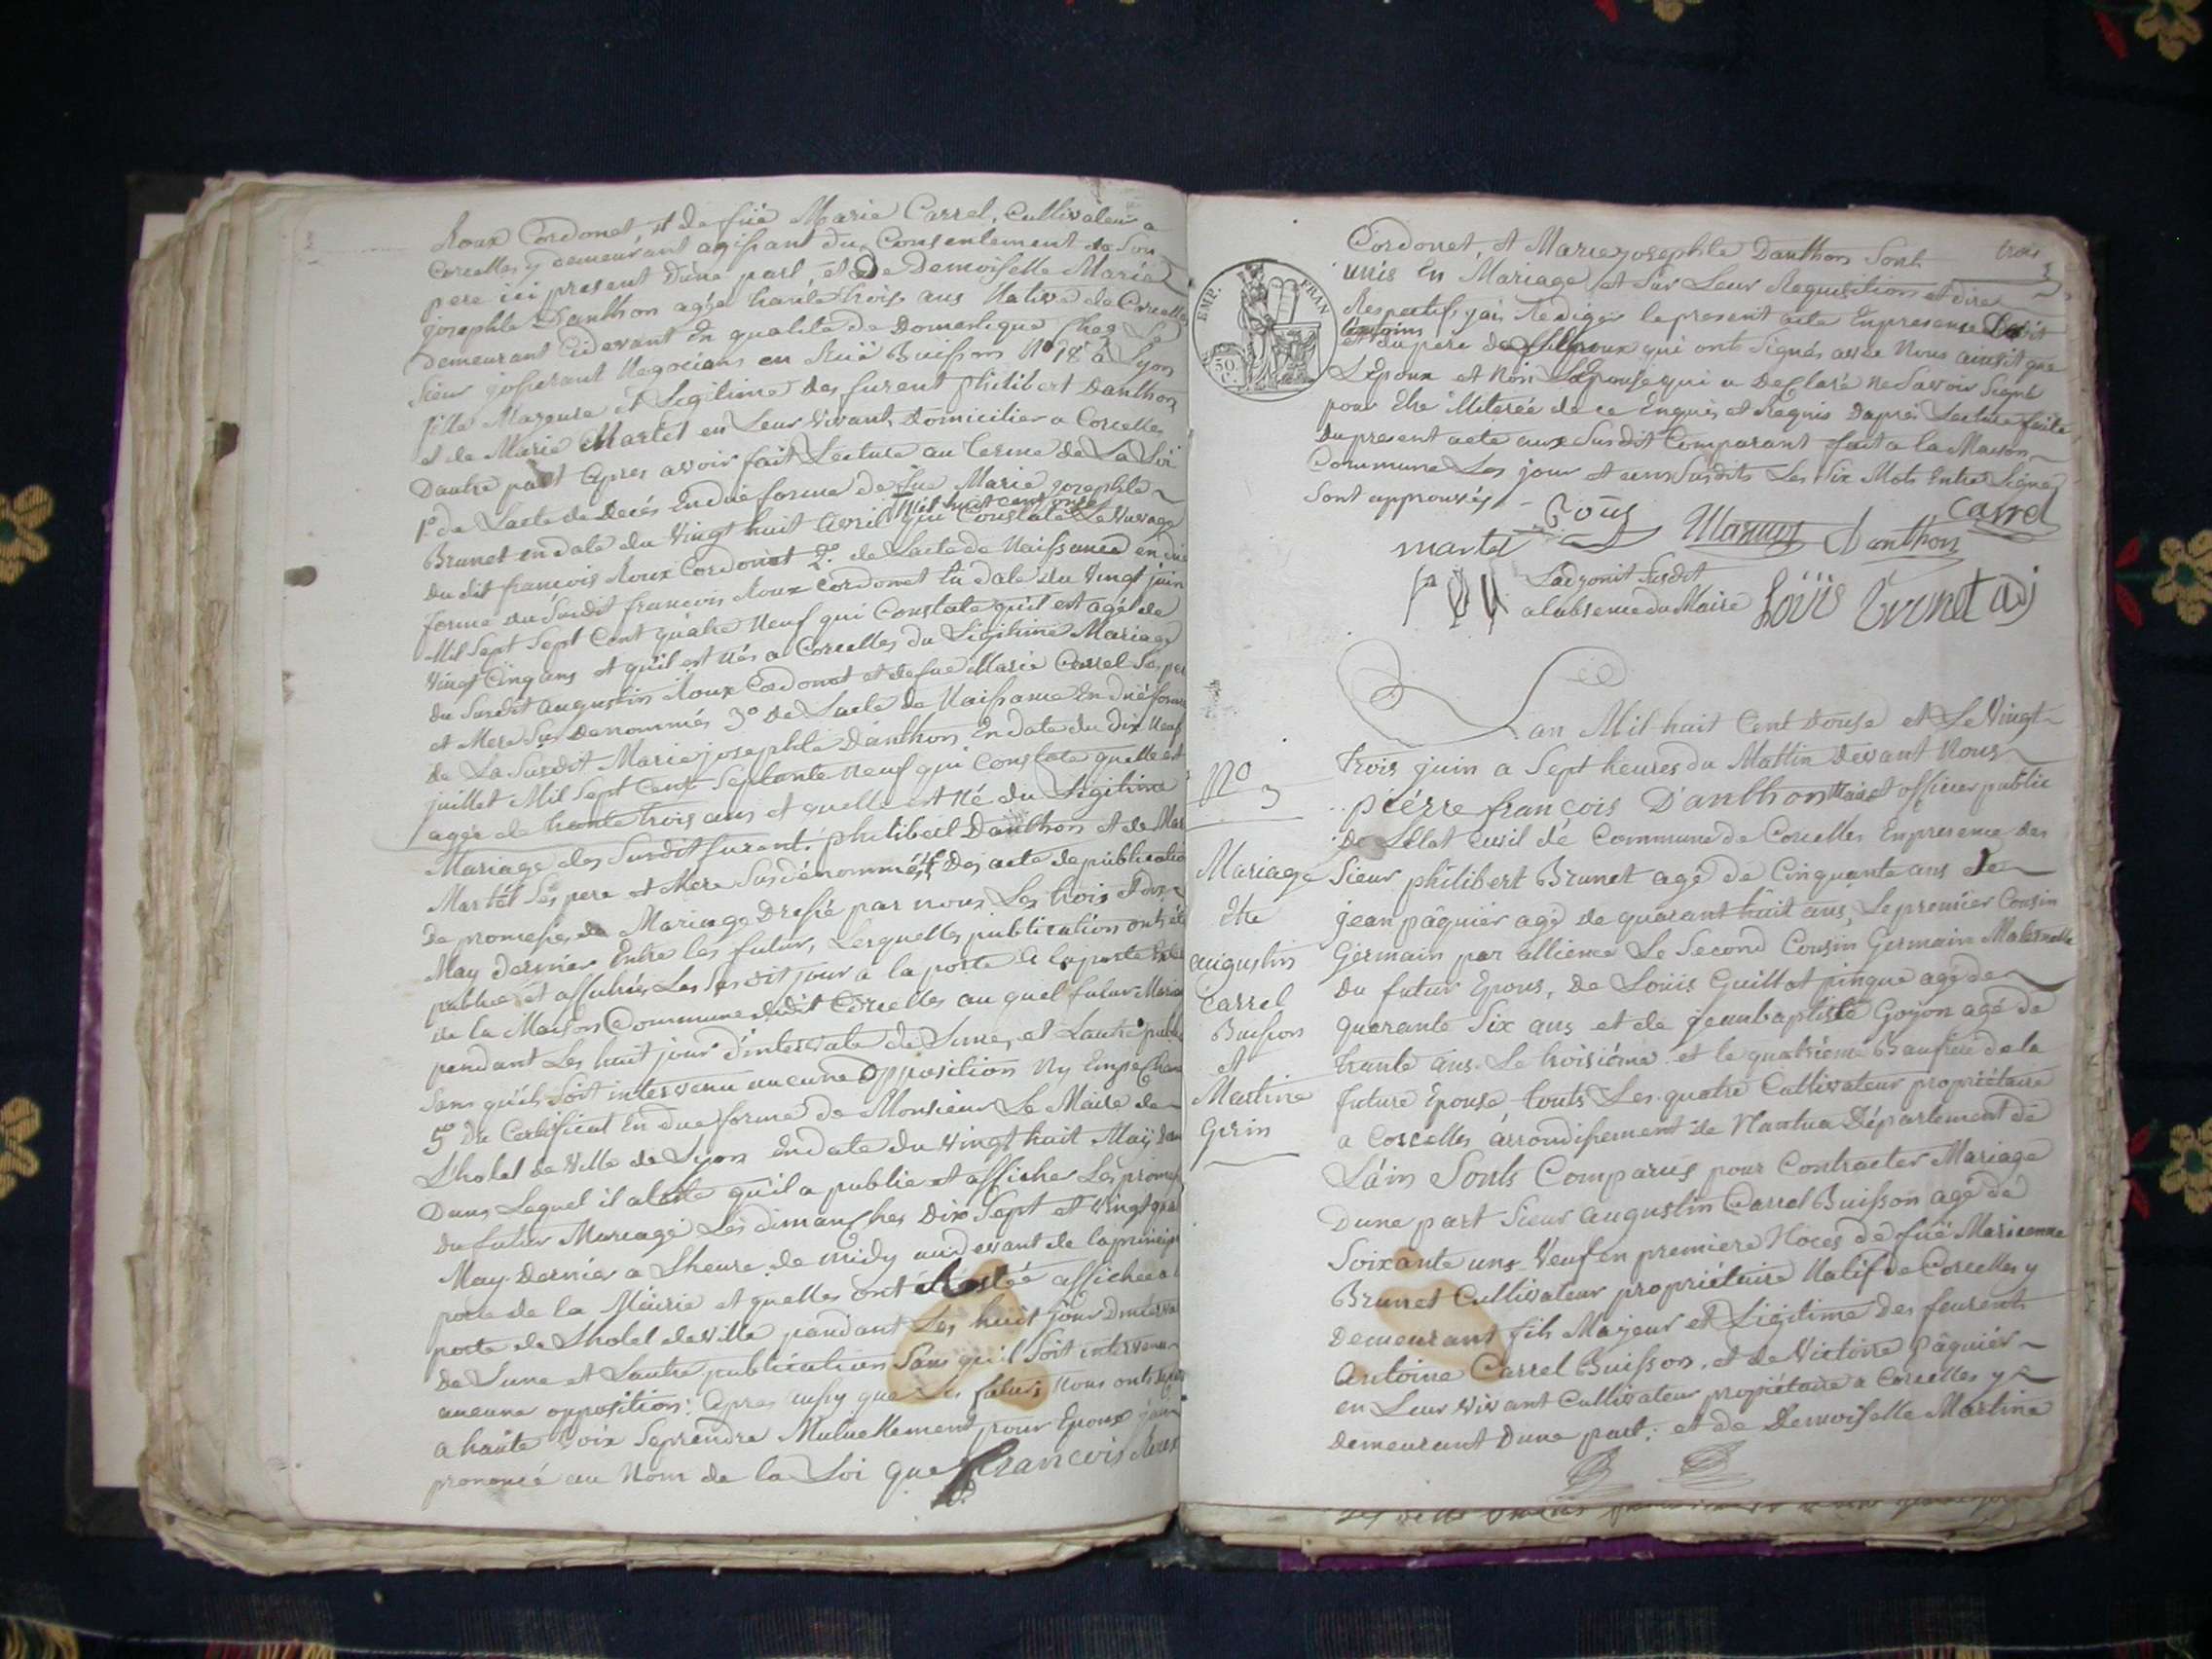 Roux Cordonet, et de füe Marie Carrel, Cultivateur a
Corcelles y demeurant agissant du Consentement de Son
pere ici present D'une part et De Demoiselle Marie
josephte Danthon agée trante trois ans Native de Corcelle
demeurant Cidevant En qualité de Domestique Chez Le
Sieur josserant Negocians en Rüe Buisson N° 18 a Lyon
fille Mageure et Legitime des furent philibert Danthon
et de Marie Martel en Leur Vivant Domicilier a Corcelles
Dautre part Apres avoir fait Lecture au terme de La Loi
1° de Lacte de Decés En düe forme de füe Marie josephte
Brunet en date du Vingt huit Avril Mil huit cent onze qui Constate Le Vuvage
du dit françois Roux Cordonet 2° de Lacte de Naissance en düe
forme du Susdit francois Roux Cordonet En date du Vingt juin
Mil Sept Sept Cent quatre Neuf qui Constate qu'il est agé de
Vingt Cinq ans et qu'il est nés a Corcelles du Légitime Mariage
du Susdit augustin Roux Cordonet et de fue Marie Carrel Ses per
et Mere Sus denommés 3° De Lacte de Naissance En düe forme
de La Susdit Marie josephte Danthon En date du Dix Neuf
juillet Mil Sept Cent Septante Neuf qui Constate quelle est
agée de trante trois ans et quelle est Né du Legitime
Mariage des Susdit furent philibert Danthon et de Mar
Martel Ses pere et Mere Susdénommés 4° Des acte de publication
De promesse de Mariage Dressé par nous Les trois et dix
May dernier Entre les futur, Lesquelles publication ont été
publié et affichés Les Susdit jour a la porte
de la Maison Commune dudit Corcelles au quel futur Maria
pendant Les huit jour d'intervale de Lune, et Lautre publi
Sans qu'il Soit intervenu aucune Opposition Ny Empecham
5° Du Certificat En due forme de Monsieur Le Maire de
L'hotel de Ville de Lyon En date du Vingt huit May
Dans Lequel il ateste qu'il a publie et afficher Les promes
Du futur Mariage Les dimanches Dix Sept et Vingt quat
May Dernier a Lheure de midy audevant de la princip
porte de la Mairie et quelles ont Restée affichee a
porte de Lhotel de Ville pandant Les huit jour Dinterva
de Lune et Lautre publication Sans qu'il Soit intervenu
aucune opposition: Apres que Les futurs Nous ont
a haute Voix Seprendre Mutuellement pour Epoux jai
prononcé au Nom de la Loi que francois Roux
trois
3
Cordonet, et Marie josephte Danthon Sont
unis En Mariage, et Sur Leur Requisition et dire
Respectifs, jais Rediger le present acte En presence Desdit
témoins
et du pere de qui onts Signés avec Nous ainsit que
L'Epoux et Non Lepouse qui a Declaré ne Savoir Signé
pour Etre illiterée de ce Enquis et Requis Dapres Lecture faite
Du present acte aux Susdit Comparant fait a la Maison
Commune Les jour et ans Susdits Les Six Mots Entre Lignes
Sont approuvés
Carrel
martel
Danthon
Ladzonit Susdit
a labsence du Maire Loüis Brunet adj
EMP. FRAN
50. C.
Lan Mil huit Cent Douse et Le Vingt
trois juin a Sept heures du Mattin Devant Nous
piérre françois D'anthon Maire et officier public
De Létat Civil de Commune de Corcelles En presence des
Sieur philibert Brunet agé de Cinquante ans de
jean pâquiér agé de quarant huit ans, Le premiér Cousin
Germain par allience Le Second Cousin Germain Maternelle
Du futur Epous, De Loüis Guillot pinque agé de
quarante Six ans et de jeanbaptiste Goyon agé de
trante ans. Le troisiéme et le quatriéme Baufrere de la
future Epouse touts Les quatre Cultivateur propriétaire
a Corcelles árrondissement de Nantua Département de
Láin Sonts Comparus pour Contracter Mariage
Dune part Sieur augustin Carrel Buisson agé de
Soixante uns Veuf en premiere Noces de füe Marienne
Brunet Cultivateur propriétaire Natif de Corcelles y
demeurant fils Majeur et Légitime des feurent
Antoine Carrel Buisson, et de Victoire pâquiér
en Leur Vivant Cultivateur propiétaire a Corcelles y
demeurant Dune part; et de Demoiselle Martine
N° 3
Mariage
Etre
augustin
Carrel
Buisson
et
Martine
Gerin